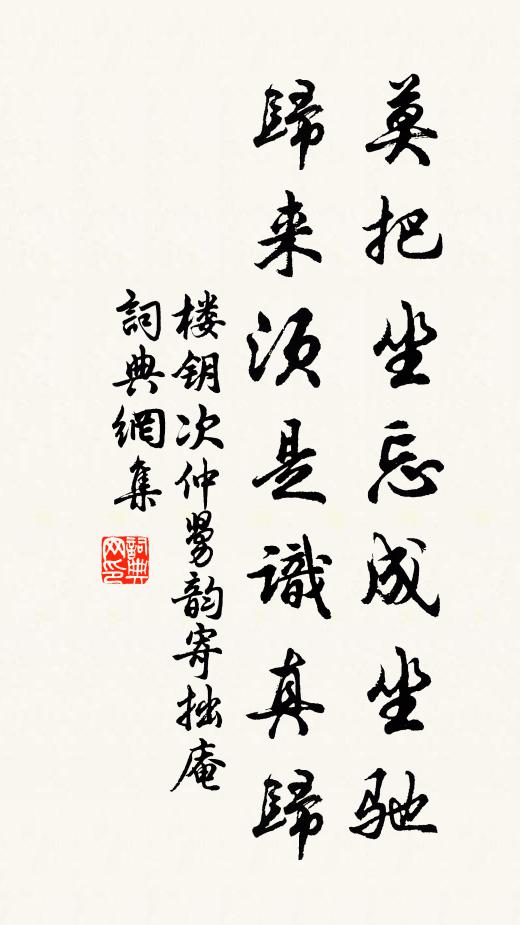 莫把坐忘成坐驰
歸来须是識真歸
楼钥次仲舅韵寄拙庵
詞典網集
詞典网印